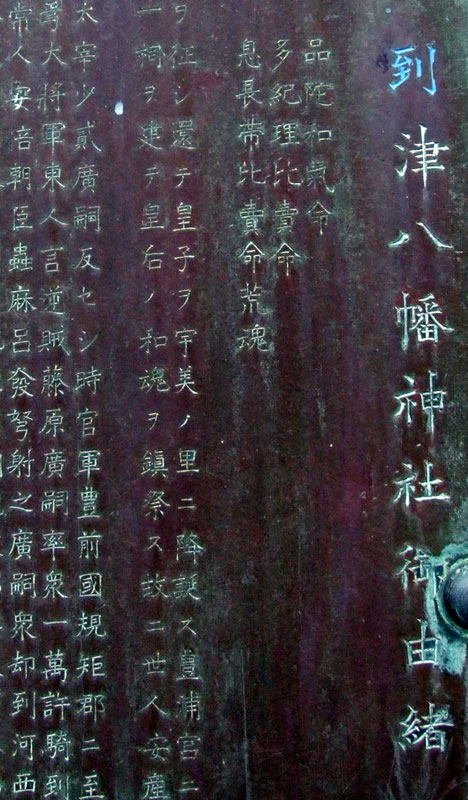 到津八幡神社御由緒
品陀和氣命
多紀理比賣命
息長帯比賣命荒魂
ヲ征シ還テ皇子ヲ宇美ノ里ニ降誕ス豊浦宮ニ
一祠ヲ建テ皇后ノ和魂ヲ鎮祭ス故ニ世人安産
太宰少貳廣嗣反セシ時官軍豊前國規矩郡ニ至
大将軍東人言逆賊藤原廣嗣率衆一萬許騎到
常人安倍朝臣蟲麻呂發弩射之廣嗣衆却到河西